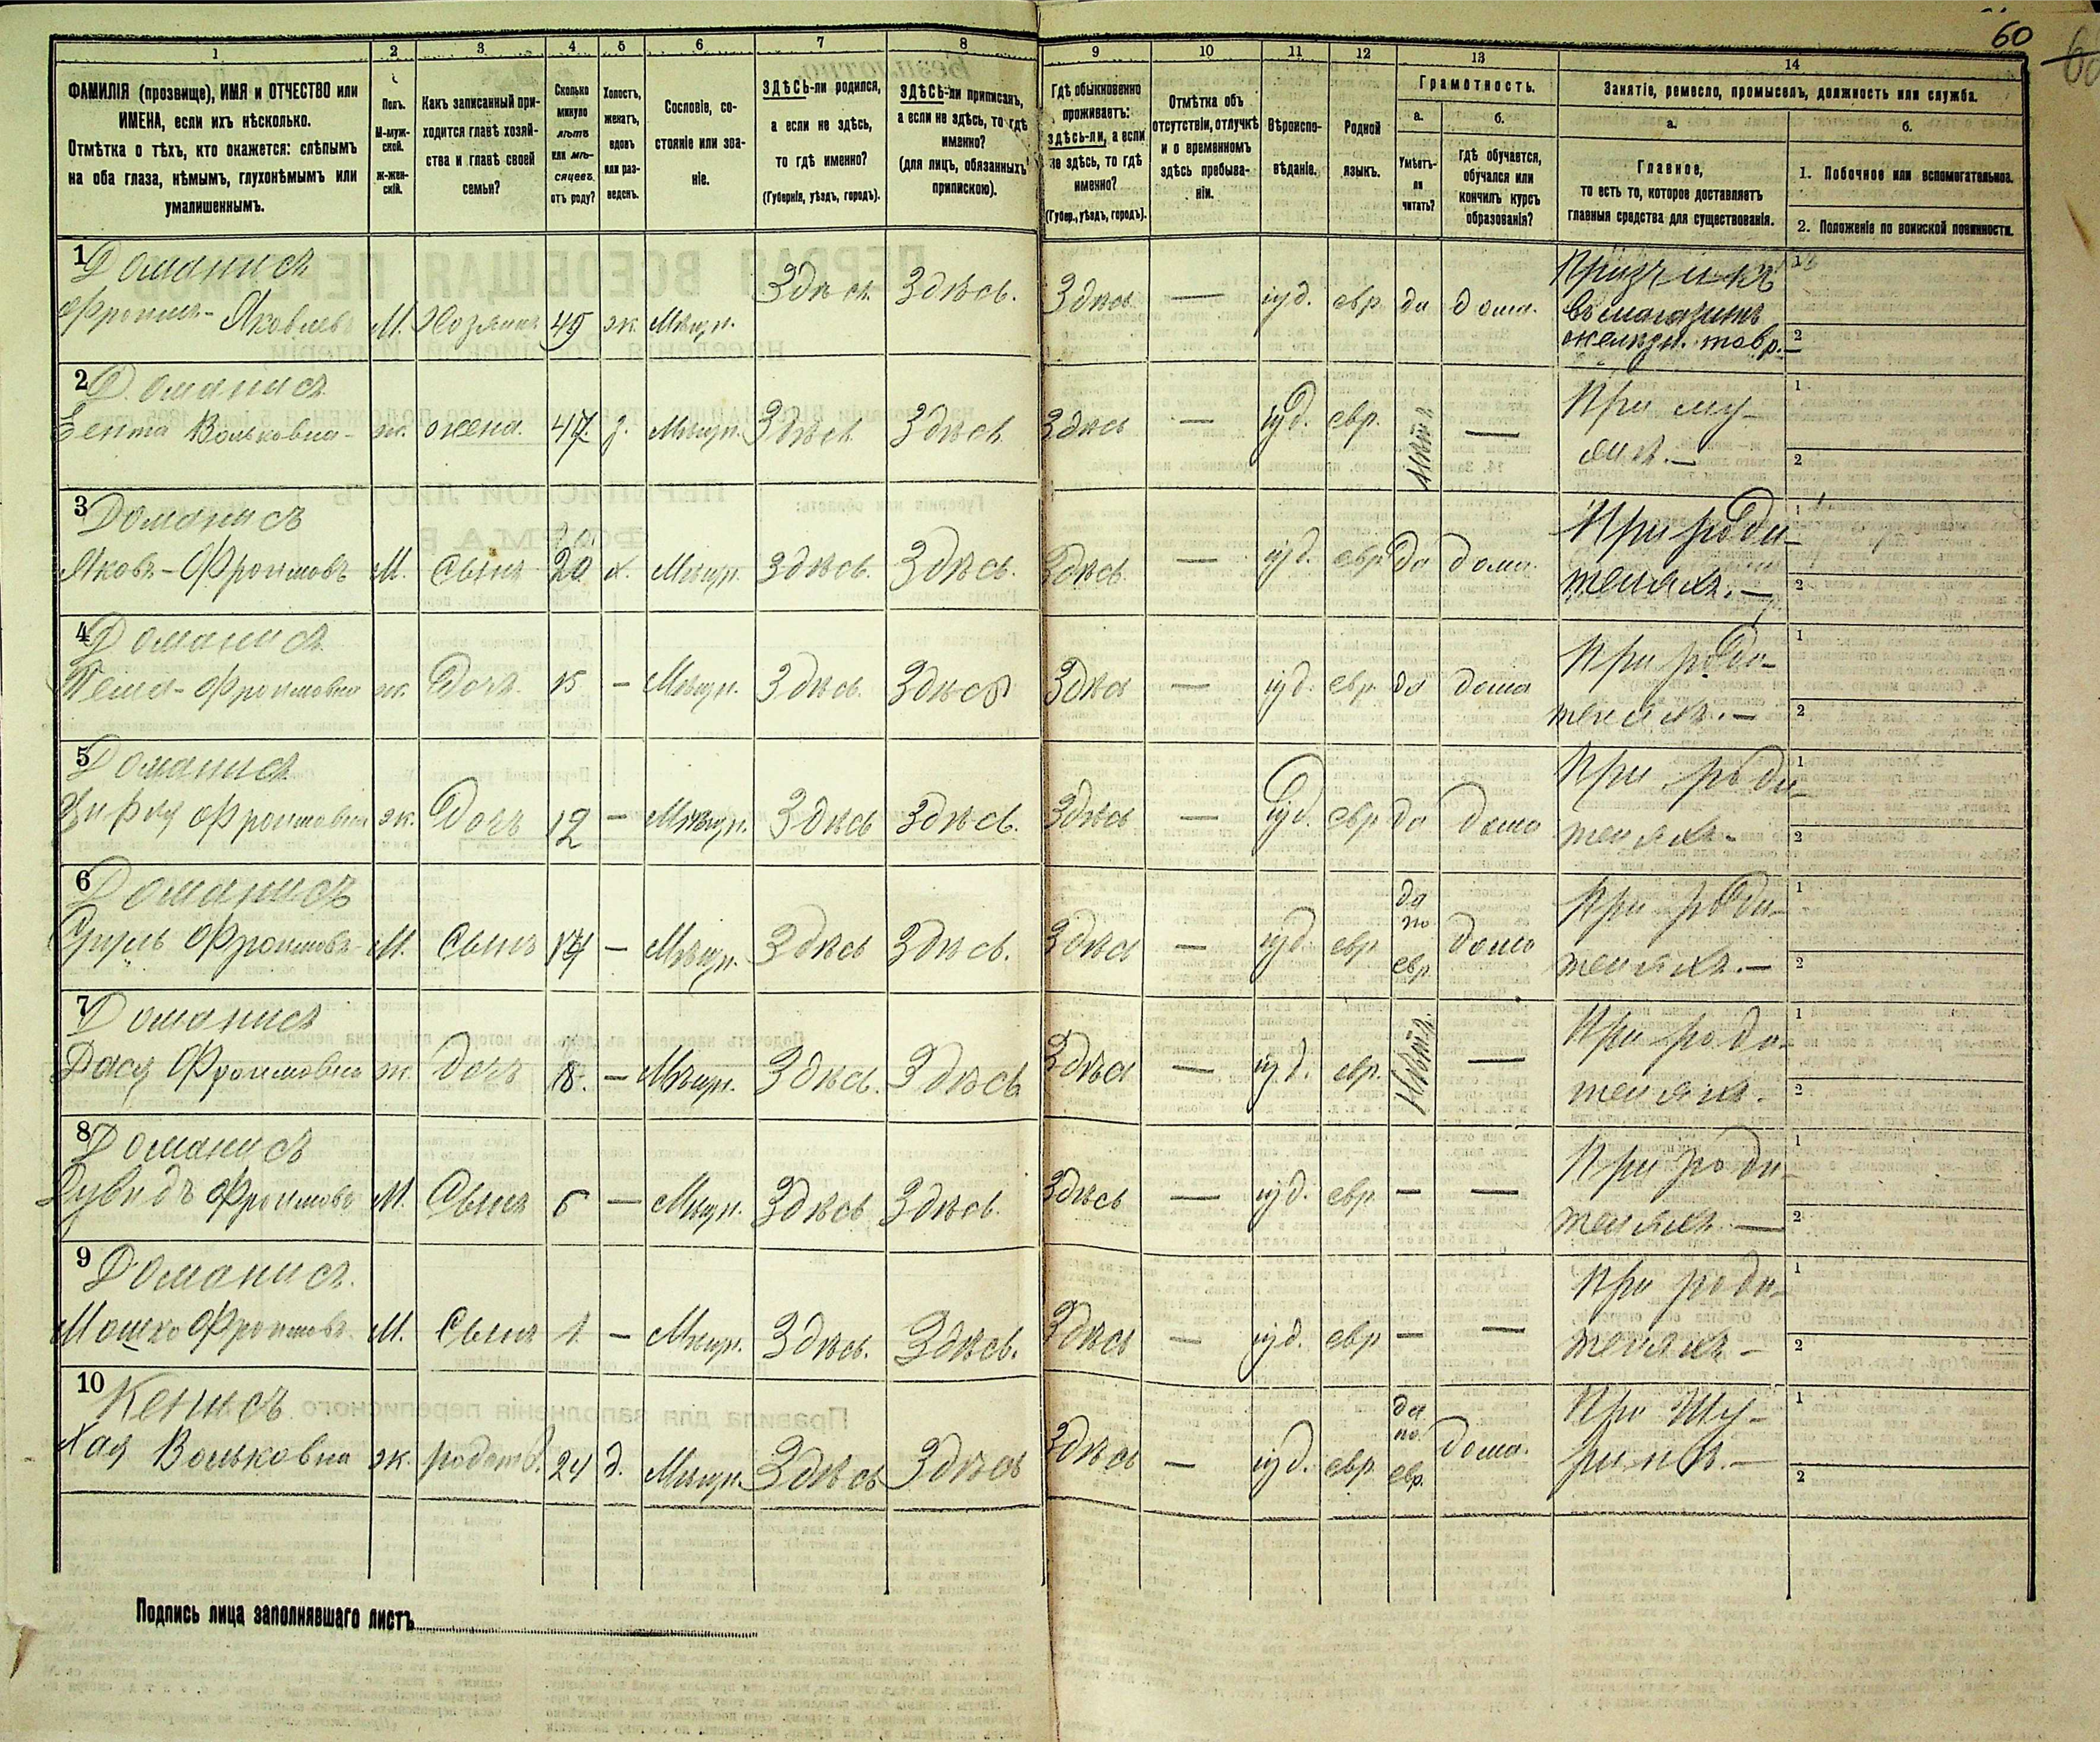 60
1 2 3 4 5 6 7 8 9 10 11 12 13 14
ФАМИЛІЯ (прозвище), ИМЯ и ОТЧЕСТВО или
ИМЕНА, если ихъ нѣсколько.
Отмѣтка о тѣхъ, кто окажется: слѣпымъ
на оба глаза, нѣмымъ, глухонѣмымъ или
умалишеннымъ.
Полъ.
М-муж-
ской.
ж-жен-
скій.
Какъ записанный при-
ходится главѣ хозяй-
ства и главѣ своей
семьи?
Сколько
минуло
лѣтъ
или мѣ-
сяцевъ
отъ роду?
Холостъ,
женатъ,
вдовъ
или раз-
веденъ.
Сословіе, со-
стояніе или зва-
ніе.
ЗДѢСЬ-ли родился,
а если не здѣсь,
то гдѣ именно?
(Губернія, уѣздъ, городъ).
ЗДѢСЬ-ли приписанъ,
а если не здѣсь, то гдѣ
именно?
(для лицъ, обязанныхъ
припискою).
Гдѣ обыкновенно
проживаетъ:
здѣсь-ли, а если
не здѣсь, то гдѣ
именно?
(Губер., уѣздъ, городъ).
Отмѣтка объ
отсутствіи, отлучкѣ
и о временномъ
здѣсь пребыва-
ніи.
Вѣроиспо-
вѣданіе.
Родной
языкъ.
Грамотность.
а.
Умѣетъ-
ли
читать?
б.
Гдѣ обучается,
обучался или
кончилъ курсъ
образованія?
Занятіе, ремесло, промыселъ, должность или служба.
а.
Главное,
то есть то, которое доставляетъ
главныя средства для существованія.
б.
1. Побочное или вспомогательное.
2. Положеніе по воинской повинности.
1 Доманисъ
Фроимъ - Яковлевъ М. Хозяинъ 49 ж. Мѣщн. Здѣсь Здѣсь. Здѣсь — іуд. евр. да дома.
въ магазинѣ
желѣзн. товр. —
2 Доманисъ
Вольковна - ж. жена. з. Мѣщн. Здѣсь Здѣсь Здѣсь — іуд. евр. нѣтъ — При му-
жѣ. —
3 Доманисъ
Яковъ - Фроимовъ М. Сынъ 20 х. Мѣщн. Здѣсь. Здѣсь. Здѣсь — іуд. евр. да дома. При роди-
теляхъ. —
4 Доманисъ
Фроимовна ж. Дочь. 15 — Мѣщн. Здѣсь. Здѣсь Здѣсь — іуд. евр. да дома При роди-
теляхъ. —
5 Доманисъ
Фроимовна ж. Дочь 12 — Мѣщн. Здѣсь Здѣсь. Здѣсь — іуд. евр. да дома При роди-
теляхъ -
6 Доманисъ
Фроимовъ М. Сынъ — Мѣщн. Здѣсь Здѣсь. Здѣсь — іуд. евр. да по евр. дома При роди-
теляхъ. —
7 Доманисъ
Дася Фроимовна ж. Дочь 8. — Мѣщн. Здѣсь. Здѣсь Здѣсь — іуд. евр. Нѣтъ. — При роди-
теляхъ.
8 Доманисъ
Дувидъ Фроимовъ М. Сынъ 6 — Мѣщн. Здѣсь Здѣсь. Здѣсь — іуд. евр. — — При роди-
теляхъ. —
9 Доманисъ.
Мошко Фроимовъ. М. Сынъ 1. — Мѣщн. Здѣсь. Здѣсь. Здѣсь — іуд. евр — — При роди-
теляхъ —
10 Кенисъ
Хая Вольковна ж. родств. 24 д. Мѣщн. Здѣсь Здѣсь Здѣсь — іуд. евр. да по евр. дома. При Шу-
ринѣ. —
Подпись лица заполнявшаго листъ